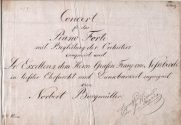 Concert
für das
Piano Forte
mit Begleitung des Orchesters
componirt und
Sr Excellenz dem Herrn Grafen Franz von Nesselrode
in tiefster Ehrfurcht und Dankbarkeit zugeeignet
von
Norbert Burgmüller